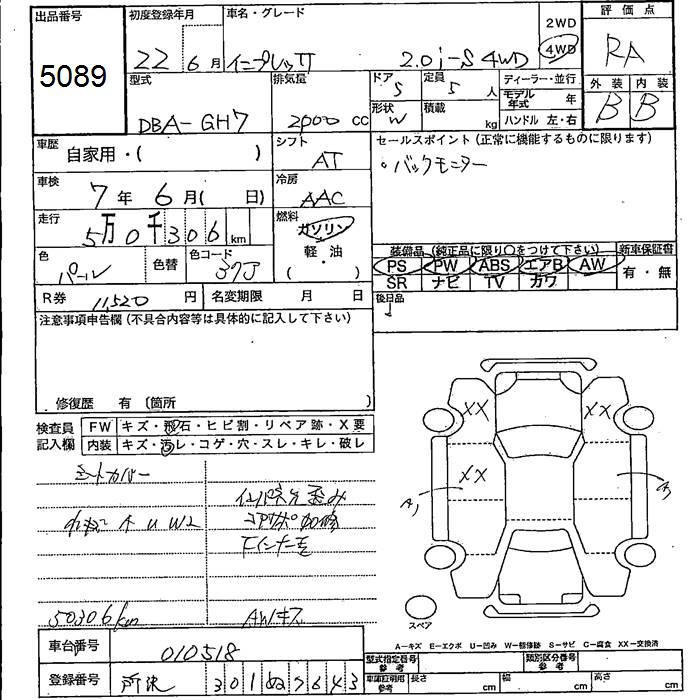 出品番号
5089
初度登録年月
22 6月
車名・グレード
インプレッサ 2.0i-S 4WD
2WD
4WD
評価点
RA
外装 内装
B B
型式
DBA-GH7
排気量
2000 cc
ドア 5
定員 5 人
形状 W
積載 kg
ディーラー・並行
モデル年式 年
ハンドル 左・右
車歴 自家用・( )
シフト AT
セールスポイント (正常に機能するものに限ります)
・バックモニター
車検 7年6月( 日)
冷房 AAC
走行 5万0千306km
燃料 ガソリン
軽・油
( )
色 パール
色替
色コード 37J
装備品 (純正品に限り○をつけて下さい)
新車保証書
PS PW ABS エアB AW
SR ナビ TV カワ
有・無
R券 11,520 円
名変期限 月 日
後日品
注意事項申告欄 (不具合内容等は具体的に記入して下さい)
修復歴 有 〔箇所 〕
検査員記入欄
FW キズ・飛石・ヒビ割・リペア跡・X要
内装 キズ・汚レ・コゲ・穴・スレ・キレ・破レ
シートカバー
コアサポ加修
50306km
AWキズ
XX XX
XX
A1
スペア
A－キズ E－エクボ U－凹み W－補修跡 S－サビ C－腐食 XX－交換済
車台番号 010518
登録番号 所沢 301 ぬ 7643
型式指定番号 参考
類別区分番号 参考
車庫証明用 参考
長さ cm
幅 cm
高さ cm